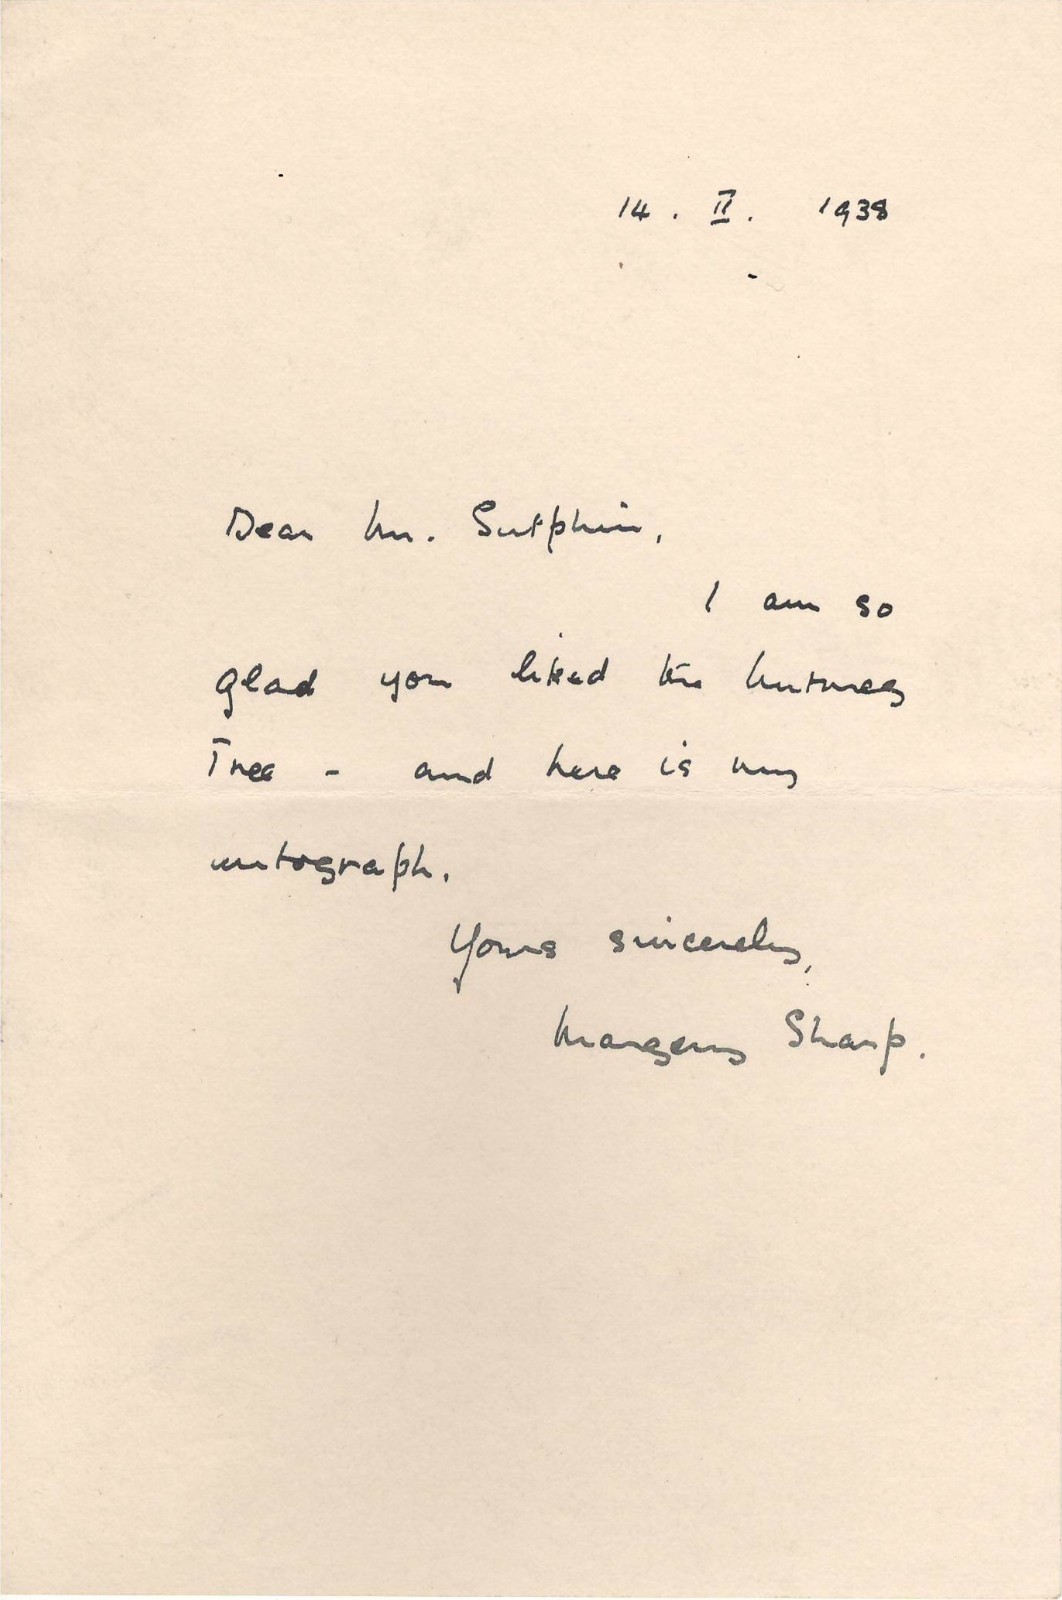 14. II. 1938
Dear Mr. Sutphin,
I am so
glad you liked the Nutmeg
Tree - and here is my
autograph.
Yours sincerely,
Margery Sharp.